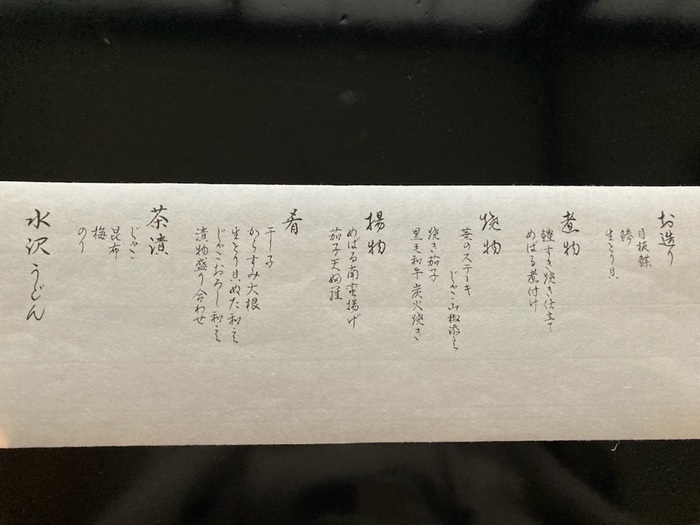 お造り
目板鰈
鱧
生とり貝
煮物
鱧すき焼き仕立て
めばる煮付け
焼物
茎のステーキ
じゃこ山椒添え
焼き茄子
黒毛和牛炭火焼き
揚物
めばる南蛮揚げ
茄子天婦羅
肴
干し子
からすみ大根
生とり貝ぬた和え
じゃこおろし和え
漬物盛り合わせ
茶漬
じゃこ
昆布
梅
のり
水沢うどん